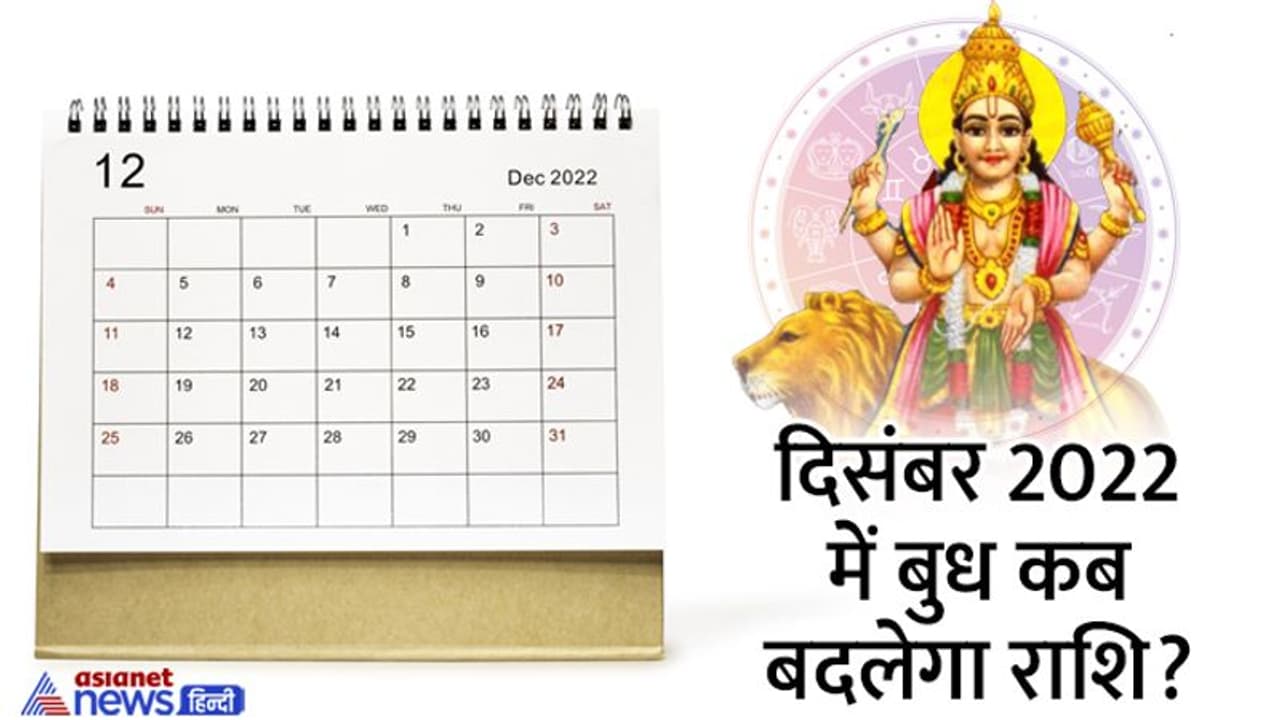 12
Dec 2022
SUN MON TUE WED THU FRI SAT
1 2 3
4 5 6 7 8 9 10
11 12 13 14 15 16 17
18 19 20 21 22 23 24
25 26 27 28 29 30 31
दिसंबर 2022
में बुध कब
बदलेगा राशि?
asianet
news हिन्दी